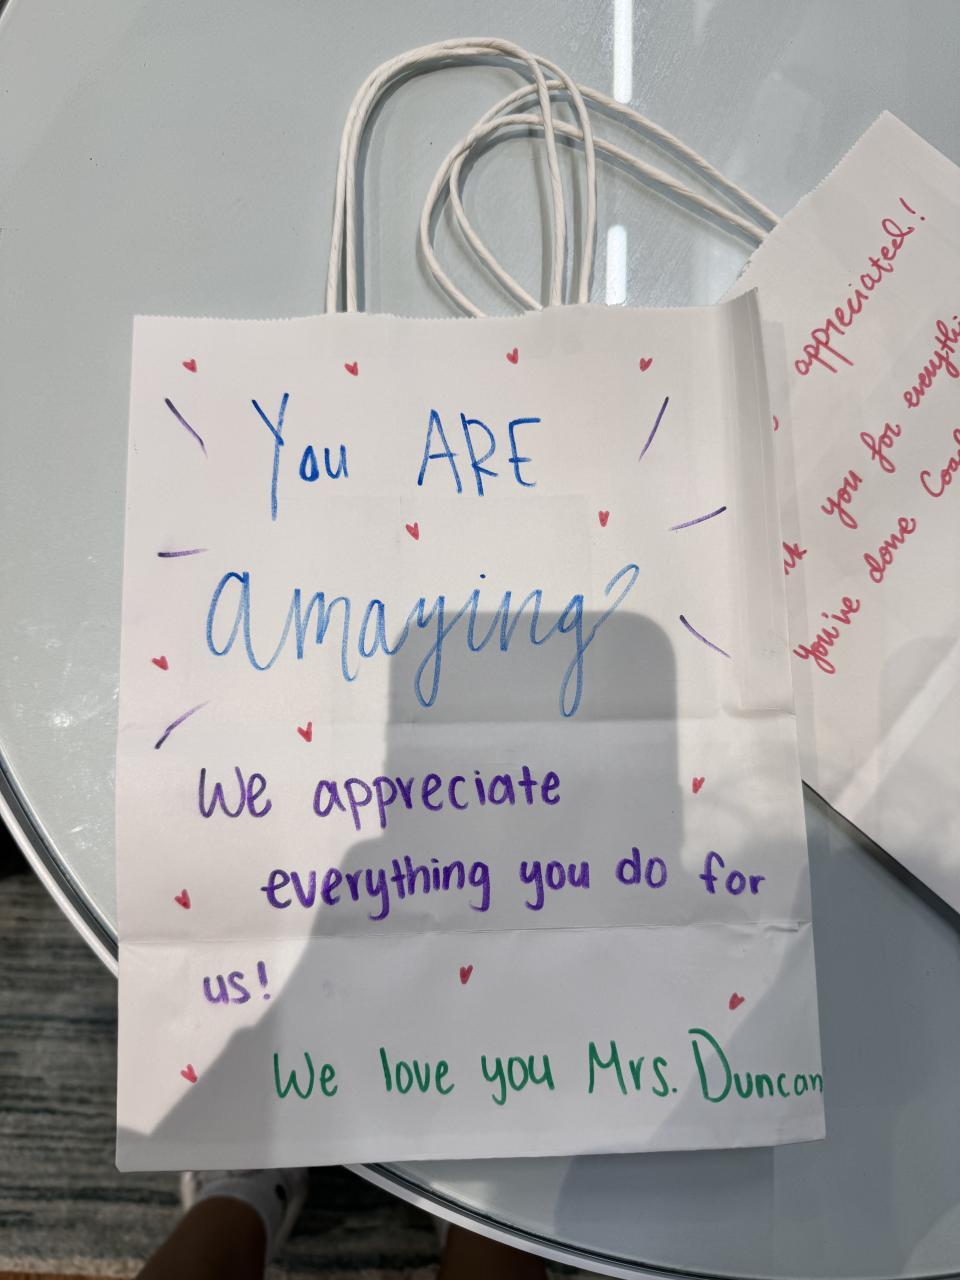 You ARE
amazing
We appreciate
everything you do for
us!
We love you Mrs. Duncan
appreciated!
you for
you've done